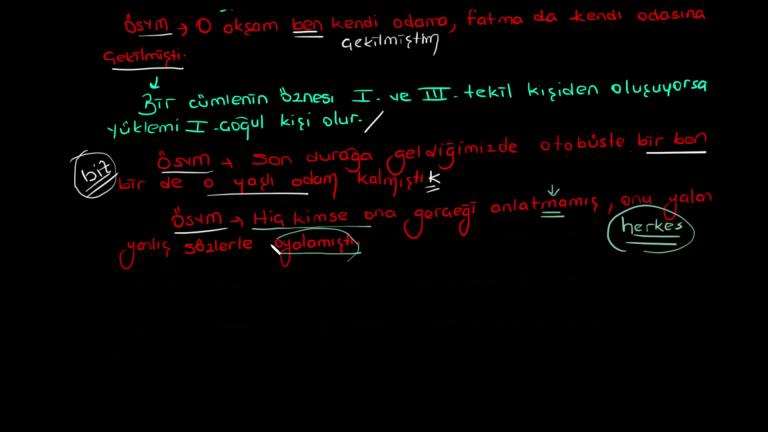 ÖSYM → O akşam ben kendi odama, fatma da kendi odasına
çekilmiştim
çekilmişti.
↓
Bir cümlenin öznesi I. ve III. tekil kişiden oluşuyorsa
yüklemi I. çoğul kişi olur.
biz
ÖSYM → Son durağa geldiğimizde otobüste bir ben
bir de o yaşlı adam kalmıştık
ÖSYM → Hiç kimse ona gerçeği anlatmamış, onu yalan
herkes
yanlış sözlerle oyalamıştı.